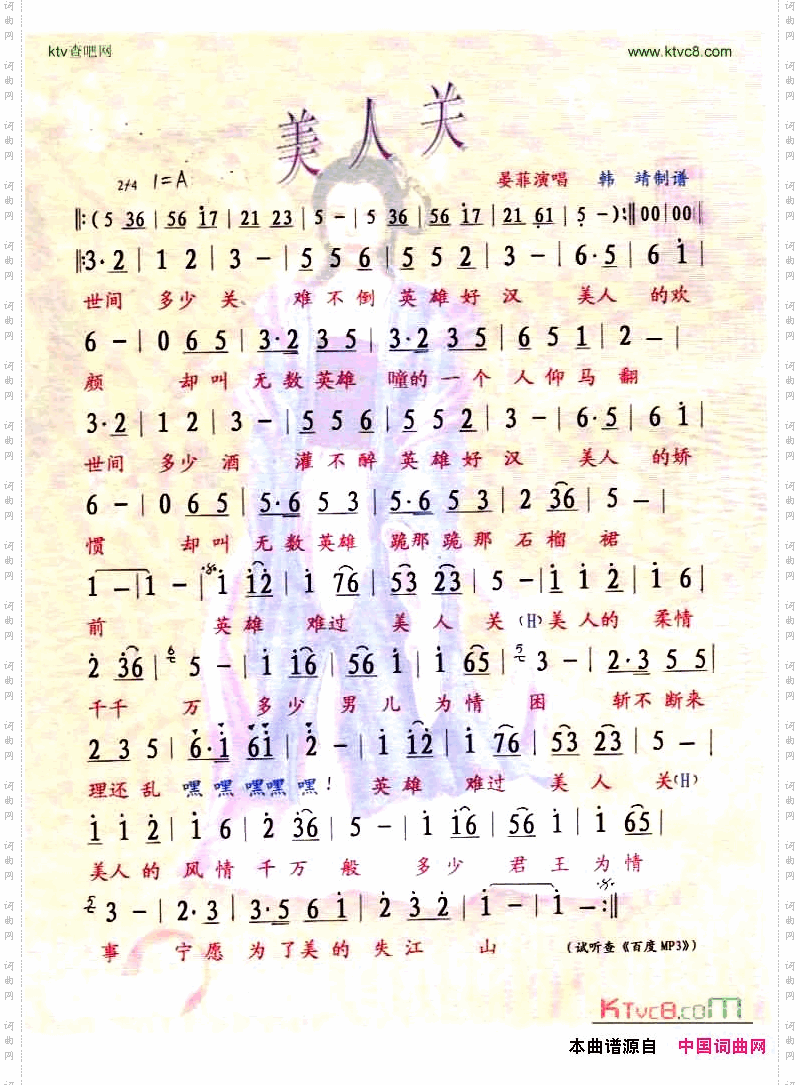 ktv查吧网 www.ktvc8.com
美人关
2/4 1=A 晏菲演唱 韩 靖制谱
‖:(5 36|56 i7|21 23|5 -|5 36|56 i7|21 61|5 -):‖00|00‖
‖:3·2|1 2|3 -|5 5 6|5 5 2|3 -|6·5|6 i|
世间 多少 关 难 不 倒 英雄 好 汉 美人 的欢
6 -|0 6 5|3·2 3 5|3·2 3 5|6 5 1|2 -|
颜 却叫 无数英雄 瞳的一个 人仰马翻
3·2|1 2|3 -|5 5 6|5 5 2|3 -|6·5|6 i|
世间 多少 酒 灌 不 醉 英雄 好 汉 美人 的娇
6 -|0 6 5|5·6 5 3|5·6 5 3|2 36|5 -|
惯 却叫 无数英雄 跪那跪那 石榴 裙
1 -|1 -|i i2|i 76|53 23|5 -|i i 2|i 6|
前 英雄 难过 美人 关(H)美人的 柔情
2 36|5 -|i i6|56 i|i 65|3 -|2·3 5 5|
千千 万 多少 男儿 为情 困 斩不断来
2 3 5|6·i 6i|2 -|i i2|i 76|53 23|5 -|
理还乱 嘿嘿嘿嘿嘿! 英雄 难过 美人 关(H)
i i 2|i 6|2 36|5 -|i i6|56 i|i 65|
美人的 风情 千万 般 多少 君王 为情
3 -|2·3|3·5 6 i|2 3 2|i -|i -:‖
事 宁愿 为了美的 失江 山 (试听查《百度MP3》)
KTvc8.coM
本曲谱源自 中国词曲网
词曲网